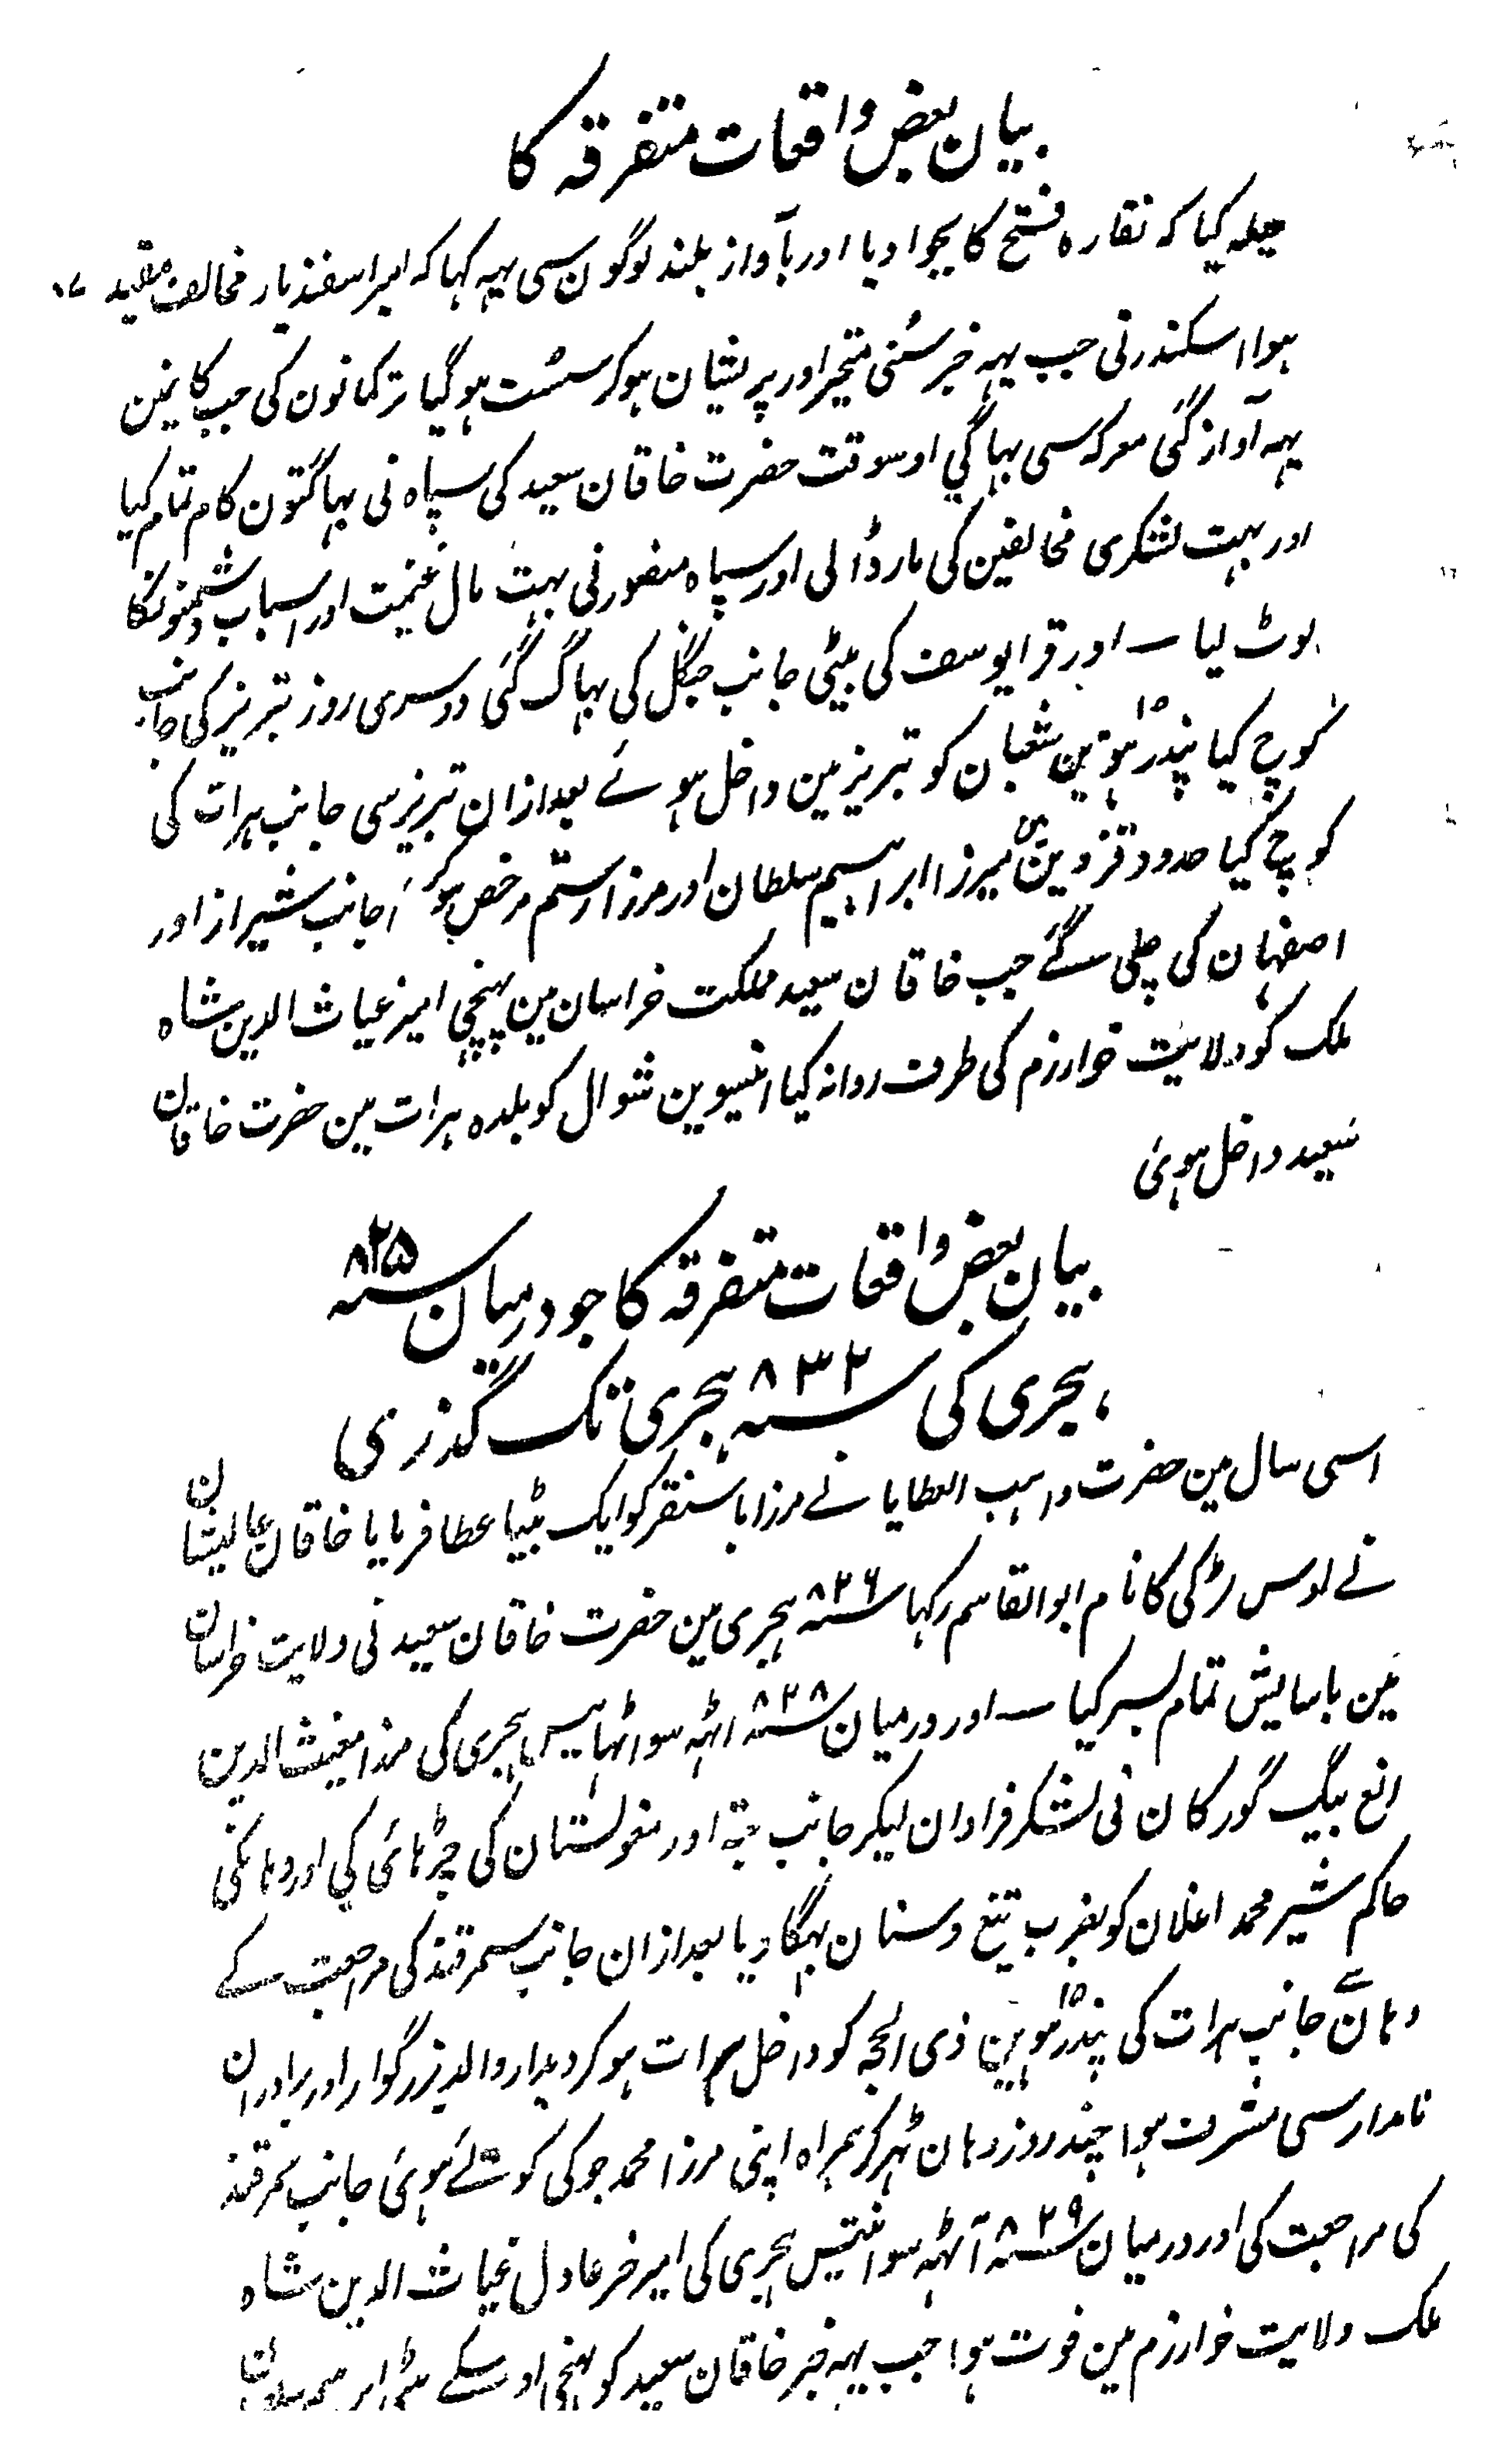 بیان بعض واقعات متفرقہ کا
حیلہ کیا کہ نقارہ فتح کا بجوا دیا اور بآواز بلند لوگون سی یہہ کہا کہ امیر اسفندیار مخالف مقید
ہوا اسکندر نی جب یہہ خبر سُنی متحیر اور پریشان ہوکر سست ہوگیا ترکمانون کی جب کانین
یہہ آواز گئی معرکہ سی بہاگی اوسوقت حضرت خاقان سعید کی سپاہ نی بہاگتون کام تمام کیا
اور بہت لشکری مخالفین کی مار ڈالی اور سپاہ منصور نی بہت مال غنیمت اور اسباب دشمنونکا
لوٹ لیا ـ اور قرایوسف کی بیٹی جانب جنگل کی بہاگ گئی دوسری روز تبریز کی جانب
کوچ کیا پندرہوین ۱۵ شعبان کو تبریز مین داخل ہوئے بعد ازان تبریز سی جانب ہرات کی
کوچ کیا حدود قزوین مین میرزا ابراہیم سلطان اور مرزا رستم مرخص ہوکر جانب شیراز اور
اصفہان کی چلی گئے جب خاقان سعید مملکت خراسان مین پہنچی امیر غیاث الدین شاہ
ملک کو ولایت خوارزم کی طرف روانہ کیا انیسوین شوال کو بلدہ ہرات مین حضرت خاقان
سعید داخل ہوئی
بیان بعض واقعات متفرقہ کا جو درمیان سنہ ۸۲۵
ہجری کی سنہ ۸۳۲ ہجری تک گذری
اسی سال مین حضرت واہب العطایا نے مرزا باسنقر کو ایک بیٹا عطا فرمایا خاقان عالیشان
نے اوس لڑکی کا نام ابوالقاسم رکہا سنہ ۸۲۶ ہجری مین حضرت خاقان سعید نی ولایت خراسان
مین باسایش تمام بسر کیا ـ اور درمیان سنہ ۸۲۸ اٹہہ سو اٹہائیس ہجری کی مرزا مغیث الدین
الغ بیگ گورکان نی لشکر فراوان لیکر جانب جتہ اور مغولستان کی چڑہائی کی اور وہانکی
حاکم شیر محمد اغلان کو بضرب تیغ و سنان بہگا دیا بعد ازان جانب سمرقند کی مراجعت کے
وہان سے جانب ہرات کی پندرہوین ۱۵ ذی الحجہ کو داخل ہرات ہوکر دیدار والد بزرگوار اور برادران
نامدار سی مشرف ہوا چند روز وہان ٹہر کر ہمراہ اپنی مرزا محمد جوکی کو لئے ہوئی جانب سمرقند
کی مراجعت کی اور درمیان سنہ ۸۲۹ آٹہہ سو انتیس ہجری کی امیر عادل غیاث الدین شاہ
ملک ولایت خوارزم مین فوت ہوا جب یہہ خبر خاقان سعید کو پہنچی اوسکے بیٹی